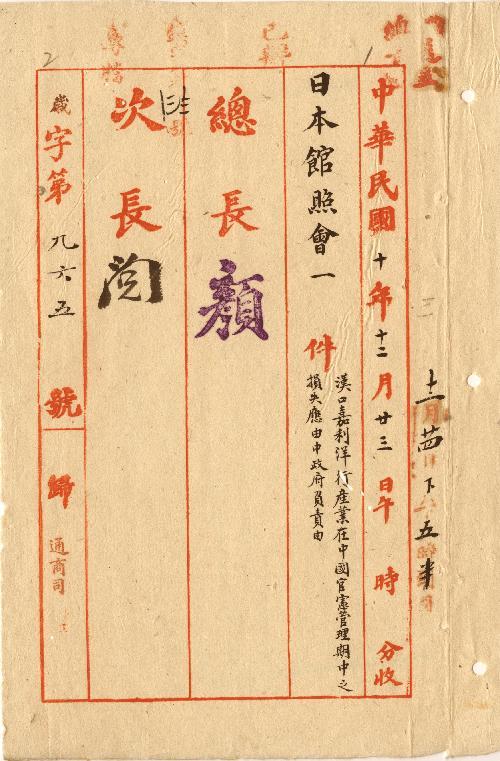 十二月廿四日下五半
中華民國十年十二月廿三日午時分收
日本館照會一件
漢口嘉利洋行產業在中國官憲管理期中之
損失應由中政府負責由
總長顏
次長閱
歲字第九六五號歸通商司